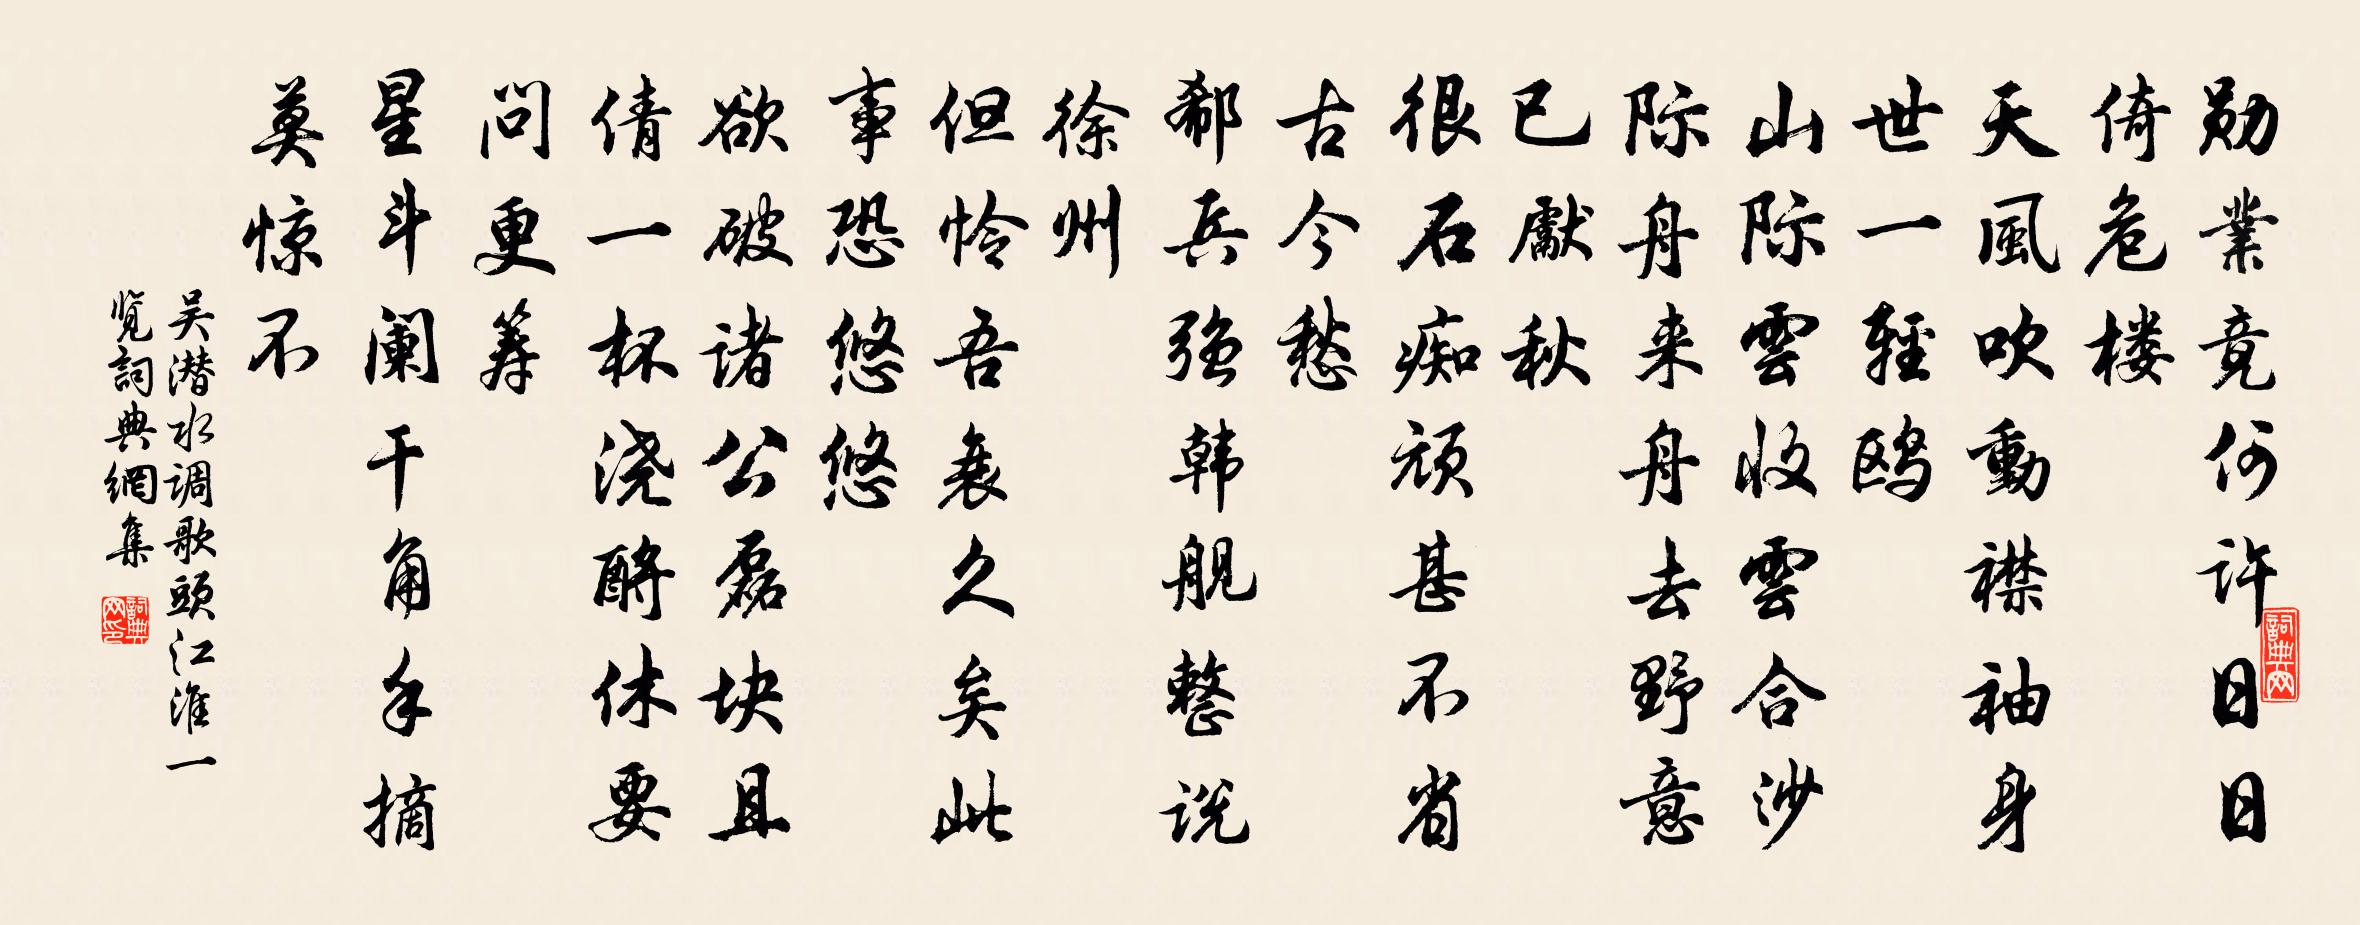 勋業竟何许日日
倚危楼
天風吹動襟袖身
世一輕鸥
山际雲收雲合沙
际舟来舟去野意
已獻秋
很石痴顽甚不省
古今愁
郗兵强韩舰整说
徐州
但怜吾衰久矣此
事恐悠悠
欲破诸公磊块且
倩一杯浇酹休要
问更筹
星斗阑干角手摘
莫惊不
吴潜水调歌頭江淮一
览詞典網集
詞典网
詞典网印